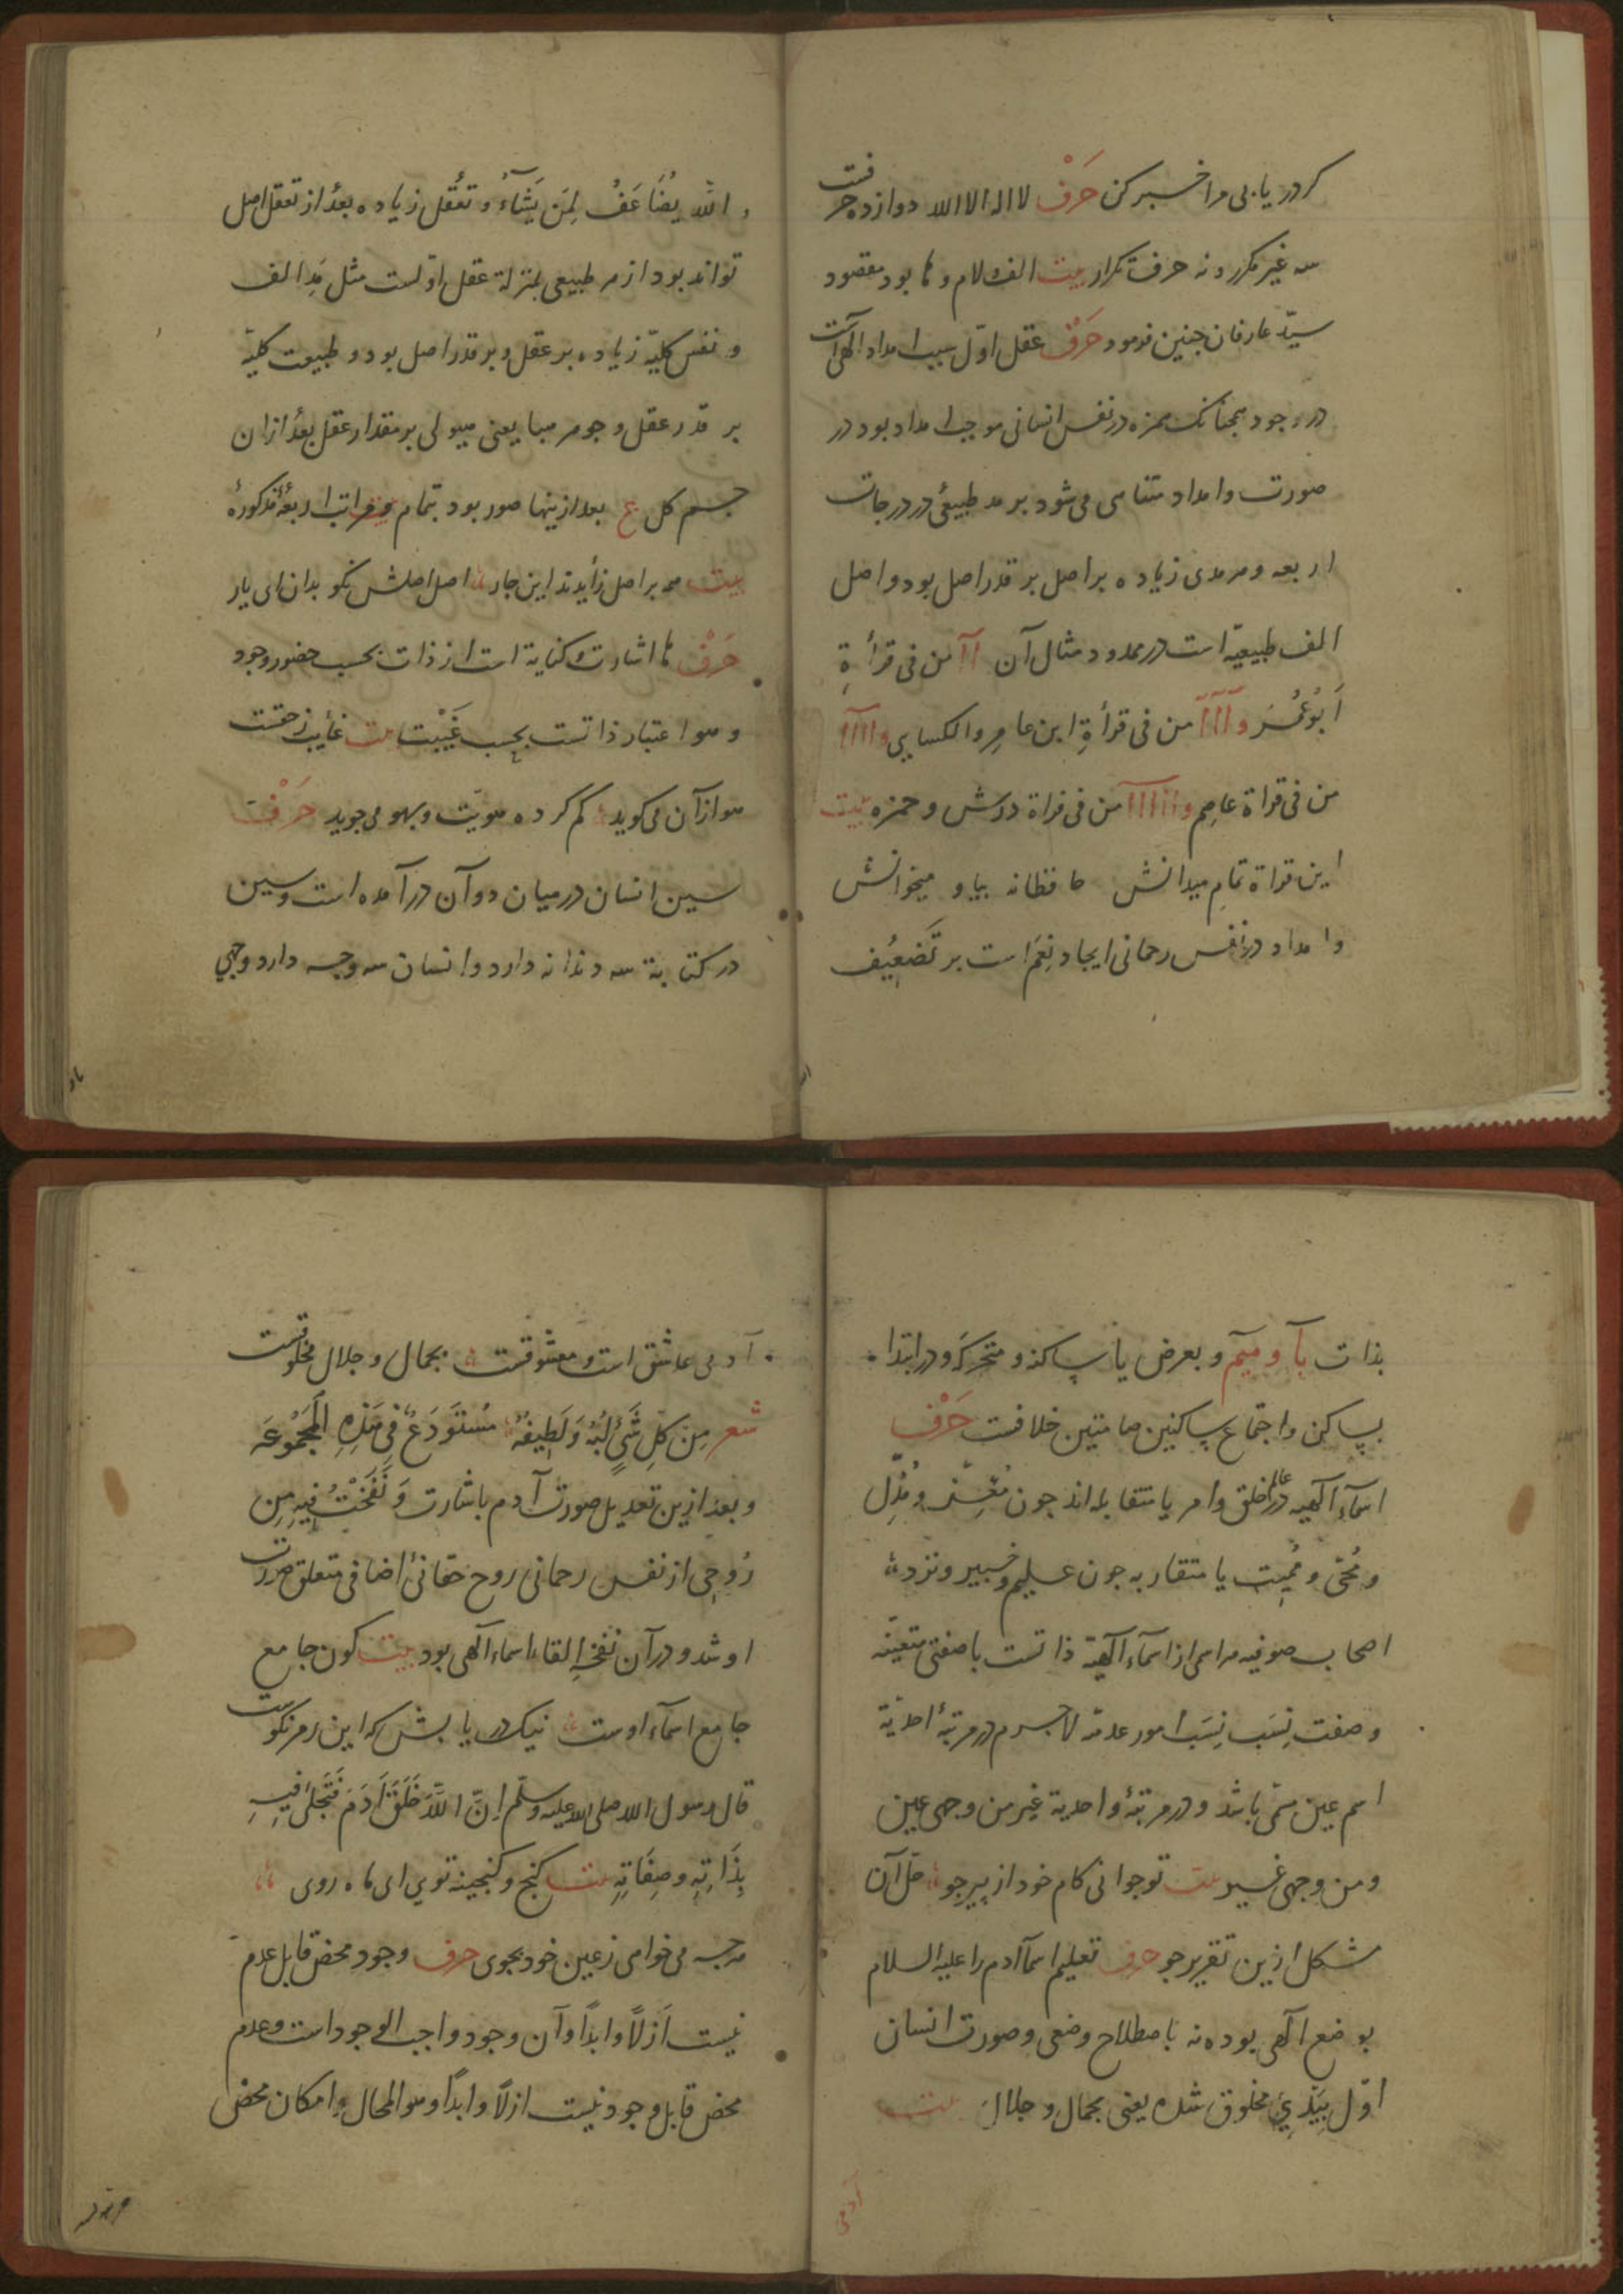 کر دریابی مرا خبر کن حَرْف لا اله الا الله دوازده حرفست
سه غیر مکرر و نه حرف تکرار بیت الف و لام و ها بود مقصود
سیّد عارفان جنین فرمود حَرْف عقل اوّل سبب امداد الٓهی است
در وجود همجنانک همزه در نفس انسانی موجب امداد بود در
صورت و امداد متناهی می شود بر مد طبیعی در درجات
اربعه و هر مدی زیاده بر اصل بر قدر اصل بود و اصل
الف طبیعیّه است در ممدود مثال آن اآ من فی قرأةِ
اَبُوعُمَر و آآآ من فی قرأةِ ابن عامِر و الکسایی و اااآ
من فی قراة عاصِم و اااااآ من فی قراة ورش و حمزه بیت
این قراة تمام میدانش حافظانه بیا و میخوانش
و امداد در نفس رحمانی ایجاد نِعَم است بر تَضعیُف
و اللّه یُضَاعَفُ لِمَن یَشَآءُ و تعُقل زیاده بعدُ از تعقل اصل
تواند بود از مر طبیعی بمنزلة عقل اوّلست مثل مَدِ الف
و نفس کلیّه زیاده بر عقل و بر قدر اصل بود و طبیعت کلیّه
بر قدر عقل و جوهر هبا یعنی هیولی بر مقدار عقل بعدُ ازان
جسم کل بعد ازینها صور بود بتمام مراتب اربعهٔ مذکورهٔ
بیت هر بر اصل زأیدند این جار اصل اصلش نکو بدان ای یار
حَرْف ها اشارت و کنایة است از ذات بحسب حضور وجود
و هوا عتبار ذاتست بحسب غَیْبْت بیت غأیب ز حقست
هو ازآن می کوید کم کرده هویّت و بهو می جوید حَرْف
سین انسان در میان دو آن در آمده است و سین
در کتابة سه دندانه دارد و انسان سه وجه دارد وجهی
بذات بآ و میّم و بعرض یا ساکنه و متحرکه و در ابتدا
بساکن و اجتماع ساکنین صامتین خلافست حَرْف
اسمآء الٓهیه در عالم خلق و امر یا متقابله اند جون مُعِز و مُذِل
و مُحیّ و مُمِیت یا متقاربه جون علیم و خبیر و نزد
اصحاب صوفیه هر اسمی از اسمآء الٓهیّه ذاتست با صفتی متعیّنه
و صفت نِسَب نِسَب امور عدمیّة لاجرم در مرتبهٔ احدیّة
اسم عین مسمّی باشد و در مرتبهٔ واحدیة غیر من وجهی عین
و من وجهی غیر بیت توجوانی کام خود از پیر جو حَلّ آن
شکل ازین تقریر جو حرف تعلیم اسمآ آدم را علیه السلام
بوضع الٓهی بوده نه باصطلاح وضعی و صورت انسان
اوّل بِیَدِیَ مخلوق شده یعنی بجمال و جلال بیت
آدمی
آدمی عاشق است و معشوقست بجمال و جلال مخلوقست
شعر مِن کُلِّ شَیٍ لُبُهُ وَ لَطِیفُهُ مُستَودَعٌ فِی هَذِهِ المَجمُوعَه
و بعد ازین تعدیل صورت آدم باشارت وَ نَفَختُ فِیهِ مِن
رُوحِی از نفس رحمانی روح حقانی اضافی متعلق صورت
او شد و در آن نفخهِ القاء اسماء الٓهی بود بیت کون جامع
جامع اسمآء اوست نیک دریابش که این رمز نکوست
قال رسول الله صلی الله علیه وسلّم اِنّ اللّهَ خَلَقَ آدَمَ فَتَجَلیَ فِیهِ
بِذَاتِهِ وصِفَاتِهِ بیت کنج و کنجینه تویی ای ماه روی
هر جه می خواهی ز عین خود بجوی حرف وجود محض قابل عدم
نیست اَزلاً و ابداً و آن وجود واجب الوجود است و عدم
محض قابل وجود نیست ازلاً و ابداً و هو المحال و امکان محض